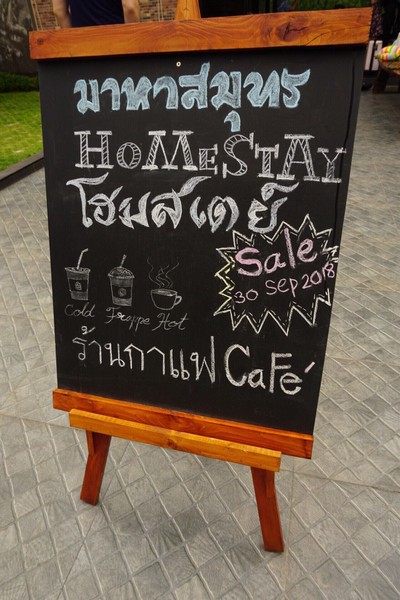 มาหาสมุทร
HOMESTAY
โฮมสเตย์
Sale
30 Sep 2018
Cold Frappe Hot
ร้านกาแฟ Café